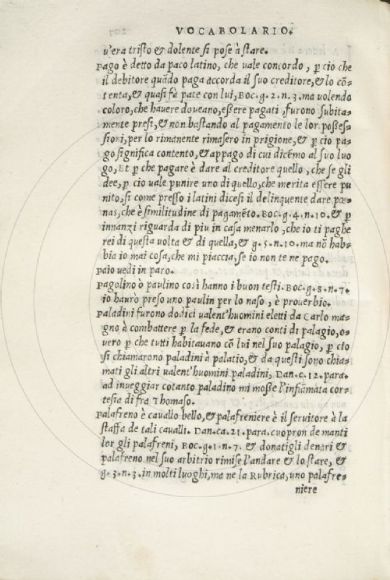 VOCABOLARIO.
u'era tristo & dolente si pose à stare.
Pago è detto da paco latino, che uale concordo, p cio che
il debitore quãdo paga accorda il suo creditore, & lo cõ-
tenta, & quasi fà pate con lui, BOC. g. 2. n. 3. ma uolendo
coloro, che hauere doueano, eßere pagati, furono subita-
mente presi, & non bastando al pagamento le lor poßes-
sioni, per lo rimanente rimasero in prigione, & p cio pa-
go significa contento, & appago di cui dicẽmo al suo luo
go, Et p che pagare è dare al creditore quello, che se gli
dee, p cio uale punire uno di quello, che merita eßere pu
nito, si come preßo i latini dicesi il delinquente dare pœ-
nas, che è similitudine di pagamẽto. BOC. g. 4. n. 10. & p
innanzi riguarda di piu in casa menarlo, che io ti paghe
rei di questa uolta & di quella, & g. 5. n. 10. ma nõ hab-
bia io mai cosa, che mi piaccia, se io non te ne pago.
Paio uedi in paro.
Pagolino o paulino cosi hanno i buon testi. BOC. g. 8. n. 7.
io hauro preso uno paulin per lo naso, è prouerbio.
Paladini furono dodici ualent'huomini eletti da Carlo ma-
gno è combattere p la fede, & erano conti di palagio, o-
uero p che tutti habitauano cõ lui nel suo palagio, p cio
si chiamarono paladini à palatio, & da questi sono chia-
mati gli altri ualent'huomini paladini, Dan. c. 12. para.
ad inueggiar cotanto paladino mi moße l'infiãmata cor-
tesia di fra Thomaso.
Palafreno è cauallo bello, & palafreniere è il seruitore à la
staffa de tali caualli. Dan. ca. 21. para. cuopron de manti
lor gli palafreni, BOC. g. 1. n. 7. & donatigli denari &
palafreno nel suo arbitrio rimise l'andare & lo stare, &
g. 3. n. 3. in molti luoghi, ma ne la Rubrica, uno palafre-
niere